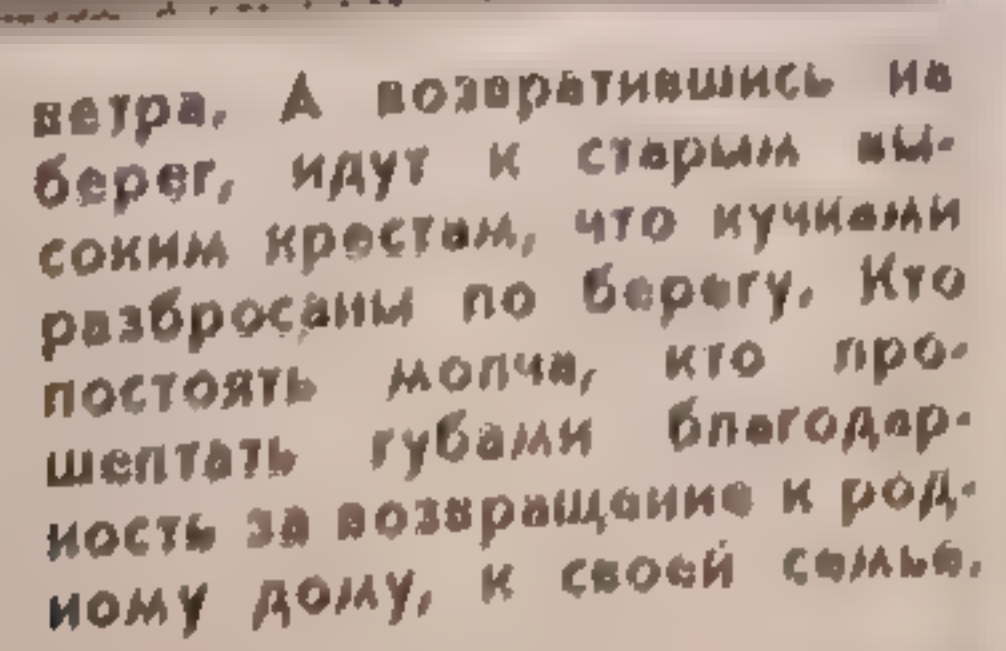 ветра. А возвратившись на
берег, идут к старым вы-
соким крестам, что кучками
разбросаны по берегу. Кто
постоять молча, кто про-
шептать губами благодар-
ность за возвращение к род-
ному дому, к своей семье.